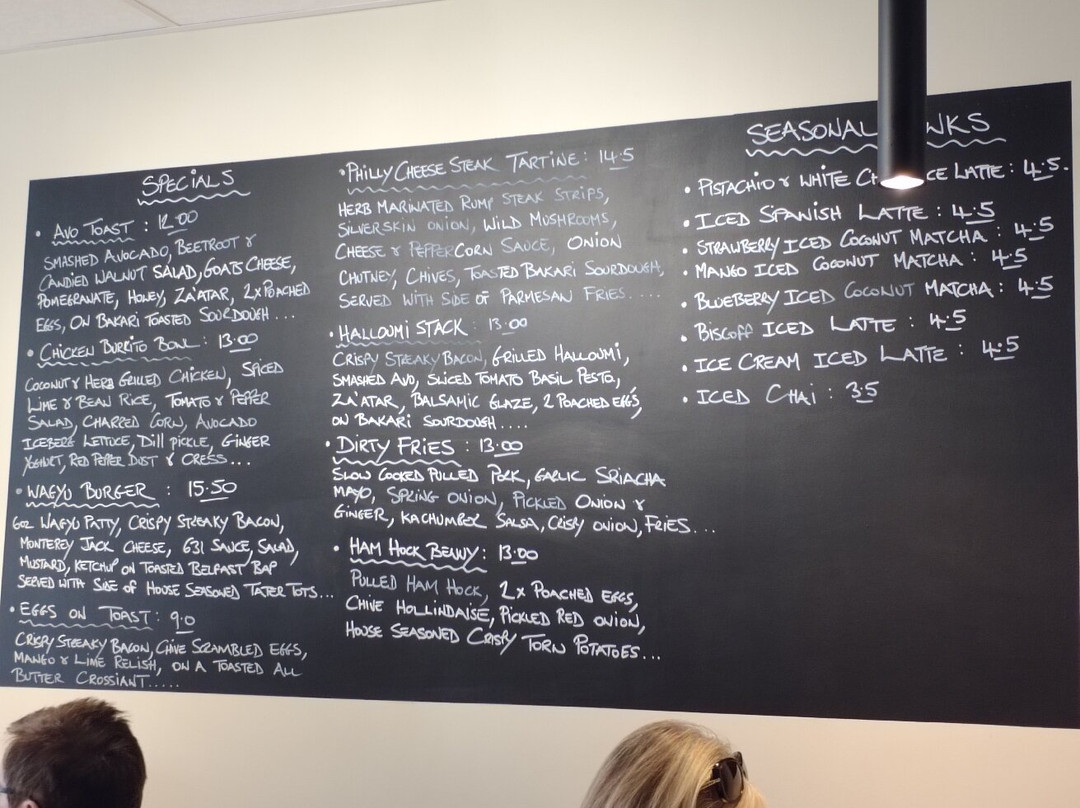 SPECIALS
• AVO TOAST : 12.00
SMASHED AVOCADO, BEETROOT &
CANDIED WALNUT SALAD, GOATS CHEESE,
POMEGRANATE, HONEY, ZA'ATAR, 2x POACHED
EGGS, ON BAKARI TOASTED SOURDOUGH ...
• CHICKEN BURRITO BOWL : 13.00
COCONUT & HERB GRILLED CHICKEN, SPICED
LIME & BEAN RICE, TOMATO & PEPPER
SALAD, CHARRED CORN, AVOCADO
ICEBERG LETTUCE, DILL PICKLE, GINGER
YOGHURT, RED PEPPER DUST & CRESS...
• WAGYU BURGER : 15.50
6oz WAGYU PATTY, CRISPY STREAKY BACON,
MONTEREY JACK CHEESE, G31 SAUCE, SALAD,
MUSTARD, KETCHUP ON TOASTED BELFAST BAP
SERVED WITH SIDE OF HOUSE SEASONED TATER TOTS...
• EGGS ON TOAST : 9.0
CRISPY STREAKY BACON, CHIVE SCRAMBLED EGGS,
MANGO & LIME RELISH, ON A TOASTED ALL
BUTTER CROSSIANT.....
• PHILLY CHEESE STEAK TARTINE : 14.5
HERB MARINATED RUMP STEAK STRIPS,
SILVERSKIN ONION, WILD MUSHROOMS,
CHEESE & PEPPERCORN SAUCE, ONION
CHUTNEY, CHIVES, TOASTED BAKARI SOURDOUGH,
SERVED WITH SIDE OF PARMESAN FRIES....
• HALLOUMI STACK : 13.00
CRISPY STREAKY BACON, GRILLED HALLOUMI,
SMASHED AVO, SLICED TOMATO BASIL PESTO,
ZA'ATAR, BALSAMIC GLAZE, 2 POACHED EGGS,
ON BAKARI SOURDOUGH....
• DIRTY FRIES : 13.00
SLOW COOKED PULLED PORK, GARLIC SRIACHA
MAYO, SPRING ONION, PICKLED ONION &
GINGER, KACHUMBER SALSA, CRISPY ONION, FRIES...
• HAM HOCK BENNY : 13.00
PULLED HAM HOCK, 2x POACHED EGGS,
CHIVE HOLLINDAISE, PICKLED RED ONION,
HOUSE SEASONED CRISPY TORN POTATOES...
SEASONAL
• PISTACHIO & WHITE LATTE : 4.5.
• ICED SPANISH LATTE : 4.5
• STRAWBERRY ICED COCONUT MATCHA : 4.5
• MANGO ICED COCONUT MATCHA : 4.5
• BLUEBERRY ICED COCONUT MATCHA : 4.5
• BISCOFF ICED LATTE : 4.5
• ICE CREAM ICED LATTE : 4.5
• ICED CHAI : 3.5